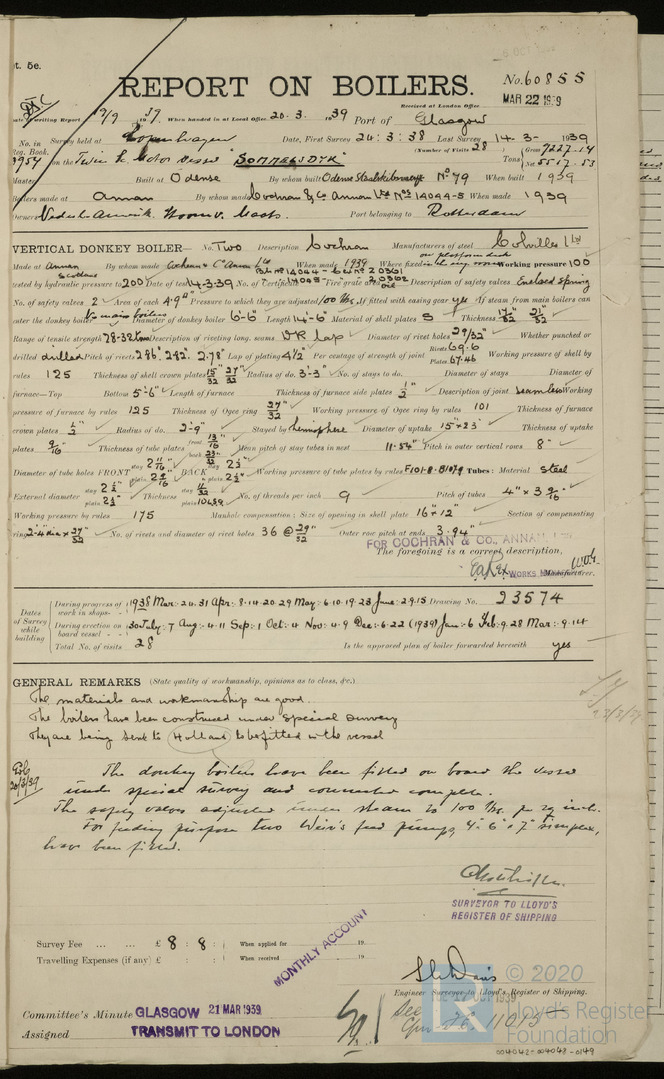 t. 5c.
REPORT ON BOILERS. No. 60855
Received at London Office MAR 22 1939
Writing Report 9/9 1937. When handed in at Local Office 20.3. 1939 Port of Glasgow
No. in Reg. Book. Survey held at Copenhagen Date, First Survey 24:3:38 Last Survey 14-3- 1939
(Number of Visits 28) Gross 7227.14
on the Twin Sc Motor vessel "SOMMELSDYK" Tons Net 5517.53
Master Built at Odense By whom built Odense Staalskibsværft No 79 When built 1939
Boilers made at Annan By whom made Cochran & Co Annan Ltd Nos 14044-5 When made 1939
Owners Port belonging to Rotterdam
VERTICAL DONKEY BOILER— No. Two Description Cochran Manufacturers of steel Colvilles Ltd
Made at Annan Scotland By whom made Cochran & Co Annan Ltd When made 1939 Where fixed Working pressure 100
tested by hydraulic pressure to 200 Date of test 14-3-39 No. of Certificate 20361 20362 Fire grate area oil Description of safety valves Enclosed spring
No. of safety valves 2 Area of each 4.9" Pressure to which they are adjusted 100 lbs. If fitted with easing gear yes If steam from main boilers can
enter the donkey boiler No main boilers Diameter of donkey boiler 6'-6" Length 14'-6" Material of shell plates S Thickness
Range of tensile strength 28-32 tons Description of riveting long. seams DR lap Diameter of rivet holes 29/32" Whether punched or
drilled drilled Pitch of rivets 2.86" 2.82" 2.78" Lap of plating 4 1/2" Per centage of strength of joint Rivets 69.6 Plates 67.46 Working pressure of shell by
rules 125 Thickness of shell crown plates 15/32 27/32 Radius of do. 3'-3" No. of stays to do. Diameter of stays Diameter of
furnace—Top Bottom 5'-6" Length of furnace Thickness of furnace side plates 1/2" Description of joint seamless Working
pressure of furnace by rules 125 Thickness of Ogee ring 27/32 Working pressure of Ogee ring by rules 101 Thickness of furnace
crown plates 1/2" Radius of do. 2'-9" Stayed by hemisphere Diameter of uptake 15" x 23" Thickness of uptake
plates 9/16" Thickness of tube plates front 13/16 back 23/32 Mean pitch of stay tubes in nest 11.54" Pitch in outer vertical rows 8"
Diameter of tube holes FRONT stay 2 11/16" plain 2 9/16" BACK stay 2 1/2" plain 2 1/2" Working pressure of tube plates by rules F101-B-B107 Tubes: Material steel
External diameter stay 2 1/2" plain 2 1/2" Thickness stay 11/32 plain No. of threads per inch 9 Pitch of tubes 4" x 3 9/16"
Working pressure by rules 175 Manhole compensation: Size of opening in shell plate 16" x 12" Section of compensating
ring 2'-4" dia x 27/32" No. of rivets and diameter of rivet holes 36 @ 29/32" Outer row pitch at ends 3.94"
FOR COCHRAN & CO., ANNAN, LTD
The foregoing is a correct description,
WORKS Manufacturer.
Dates of Survey while building
During progress of work in shops - - 1938 Mar: 24.31 Apr: 8.14.20.29 May: 6.10.19.23 June: 2.9.15 Drawing No. 23574
During erection on board vessel - - - 30 July: 7 Aug: 4.11 Sep: 1 Oct: 4 Nov: 4.9 Dec: 6.22 (1939) Jan: 6 Feb: 9.28 Mar: 9.14
Total No. of visits 28 Is the approved plan of boiler forwarded herewith yes
GENERAL REMARKS (State quality of workmanship, opinions as to class, &c.)
The materials and workmanship are good.
The boilers have been constructed under special survey
They are being sent to Holland to be fitted in the vessel
20/3/39
The donkey boilers have been fitted on board the vessel
under special survey and connected complete.
The safety valves adjusted under steam to 100 lbs. per sq inch.
For feeding purpose two Weir's feed pumps, 4" x 6" x 7" simplex,
have been fitted.
SURVEYOR TO LLOYD'S
REGISTER OF SHIPPING
Survey Fee ... ... £ 8 : 8 : When applied for 19
Travelling Expenses (if any) £ : : When received 19
MONTHLY ACCOUNT
Engineer Surveyor to Lloyd's Register of Shipping.
Committee's Minute GLASGOW 21 MAR 1939
Assigned TRANSMIT TO LONDON
© 2020
Lloyd's Register
Foundation
LR
004043-004048-0149